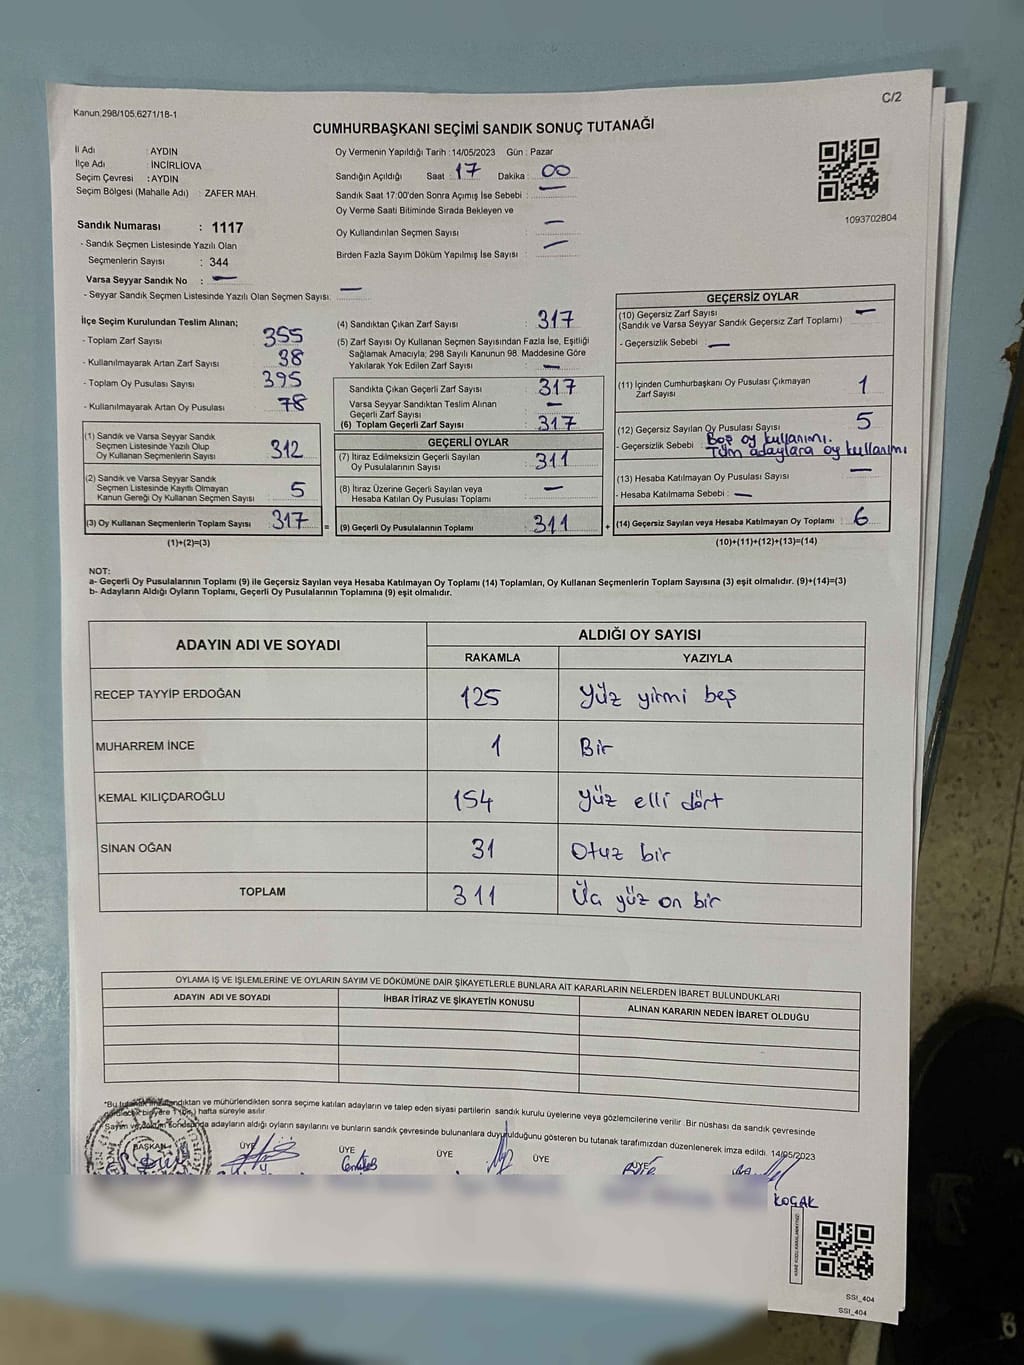 C/2
Kanun.298/105,6271/18-1
CUMHURBAŞKANI SEÇİMİ SANDIK SONUÇ TUTANAĞI
İl Adı : AYDIN
İlçe Adı : İNCİRLİOVA
Seçim Çevresi : AYDIN
Seçim Bölgesi (Mahalle Adı) : ZAFER MAH.
Sandık Numarası : 1117
- Sandık Seçmen Listesinde Yazılı Olan
Seçmenlerin Sayısı : 344
Varsa Seyyar Sandık No : —
- Seyyar Sandık Seçmen Listesinde Yazılı Olan Seçmen Sayısı: —
Oy Vermenin Yapıldığı Tarih : 14/05/2023 Gün : Pazar
Sandığın Açıldığı Saat : 17 Dakika : 00
Sandık Saat 17:00'den Sonra Açımış İse Sebebi : —
Oy Verme Saati Bitiminde Sırada Bekleyen ve
Oy Kullandırılan Seçmen Sayısı : —
Birden Fazla Sayım Döküm Yapılmış İse Sayısı : —
1093702804
İlçe Seçim Kurulundan Teslim Alınan;
- Toplam Zarf Sayısı : 355
- Kullanılmayarak Artan Zarf Sayısı : 38
- Toplam Oy Pusulası Sayısı : 395
- Kullanılmayarak Artan Oy Pusulası : 78
(1) Sandık ve Varsa Seyyar Sandık
Seçmen Listesinde Yazılı Olup
Oy Kullanan Seçmenlerin Sayısı : 312
(2) Sandık ve Varsa Seyyar Sandık
Seçmen Listesinde Kayıtlı Olmayan
Kanun Gereği Oy Kullanan Seçmen Sayısı : 5
(3) Oy Kullanan Seçmenlerin Toplam Sayısı : 317 =
(1)+(2)=(3)
(4) Sandıktan Çıkan Zarf Sayısı : 317
(5) Zarf Sayısı Oy Kullanan Seçmen Sayısından Fazla İse, Eşitliği
Sağlamak Amacıyla; 298 Sayılı Kanunun 98. Maddesine Göre
Yakılarak Yok Edilen Zarf Sayısı : —
Sandıkta Çıkan Geçerli Zarf Sayısı : 317
Varsa Seyyar Sandıktan Teslim Alınan
Geçerli Zarf Sayısı : —
(6) Toplam Geçerli Zarf Sayısı : 317
GEÇERLİ OYLAR
(7) İtiraz Edilmeksizin Geçerli Sayılan
Oy Pusulalarının Sayısı : 311
(8) İtiraz Üzerine Geçerli Sayılan veya
Hesaba Katılan Oy Pusulası Toplamı : —
(9) Geçerli Oy Pusulalarının Toplamı : 311 +
GEÇERSİZ OYLAR
(10) Geçersiz Zarf Sayısı : —
(Sandık ve Varsa Seyyar Sandık Geçersiz Zarf Toplamı)
- Geçersizlik Sebebi : —
(11) İçinden Cumhurbaşkanı Oy Pusulası Çıkmayan
Zarf Sayısı : 1
(12) Geçersiz Sayılan Oy Pusulası Sayısı : 5
- Geçersizlik Sebebi : Boş oy kullanımı.
Tüm adaylara oy kullanımı
(13) Hesaba Katılmayan Oy Pusulası Sayısı : —
- Hesaba Katılmama Sebebi : —
(14) Geçersiz Sayılan veya Hesaba Katılmayan Oy Toplamı : 6
(10)+(11)+(12)+(13)=(14)
NOT:
a- Geçerli Oy Pusulalarının Toplamı (9) ile Geçersiz Sayılan veya Hesaba Katılmayan Oy Toplamı (14) Toplamları, Oy Kullanan Seçmenlerin Toplam Sayısına (3) eşit olmalıdır. (9)+(14)=(3)
b- Adayların Aldığı Oyların Toplamı, Geçerli Oy Pusulalarının Toplamına (9) eşit olmalıdır.
ADAYIN ADI VE SOYADI ALDIĞI OY SAYISI
RAKAMLA YAZIYLA
RECEP TAYYİP ERDOĞAN 125 Yüz yirmi beş
MUHARREM İNCE 1 Bir
KEMAL KILIÇDAROĞLU 154 Yüz elli dört
SİNAN OĞAN 31 Otuz bir
TOPLAM 311 Üç yüz on bir
OYLAMA İŞ VE İŞLEMLERİNE VE OYLARIN SAYIM VE DÖKÜMÜNE DAİR ŞİKAYETLERLE BUNLARA AİT KARARLARIN NELERDEN İBARET BULUNDUKLARI
ADAYIN ADI VE SOYADI İHBAR İTİRAZ VE ŞİKAYETİN KONUSU ALINAN KARARIN NEDEN İBARET OLDUĞU
*Bu mühürlendikten sonra seçime katılan adayların ve talep eden siyasi partilerin sandık kurulu üyelerine veya gözlemcilerine verilir. Bir nüshası da sandık çevresinde
bir yere 1 hafta süreyle asılır.
Sayım adayların aldığı oyların sayılarını ve bunların sandık çevresinde bulunanlara duyurulduğunu gösteren bu tutanak tarafımızdan düzenlenerek imza edildi. 14/05/2023
BAŞKAN ÜYE ÜYE ÜYE ÜYE ÜYE
KOÇAK
SSI_404
SSI_404